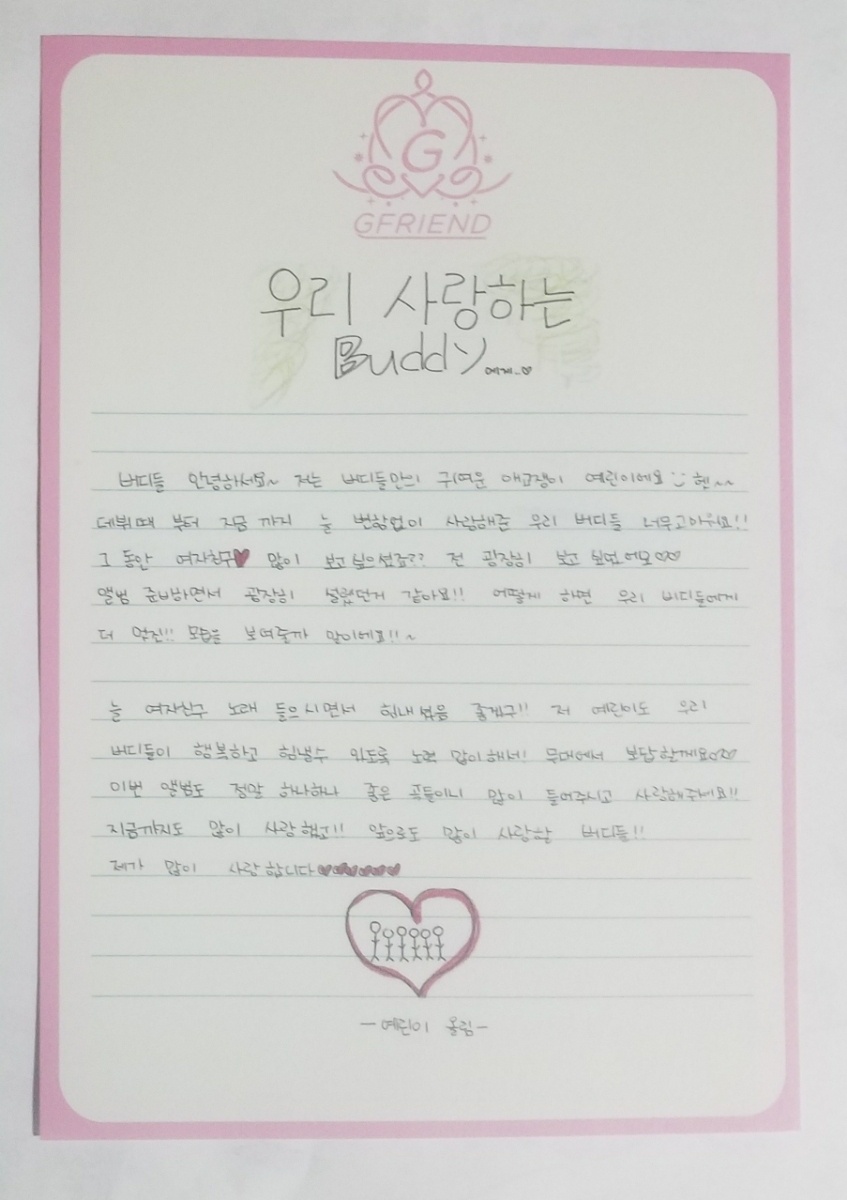 G
GFRIEND
우리 사랑하는
Buddy 에게..♡
버디들 안녕하세요~ 저는 버디들만의 귀여운 애교쟁이 예린이에요 :) 헷~~
데뷔때 부터 지금 까지 늘 변함없이 사랑해준 우리 버디들 너무고마워요!!
그 동안 여자친구♥ 많이 보고 싶으셨죠?? 전 굉장히 보고 싶었어요♡♡
앨범 준비하면서 굉장히 설렜던거 같아요!! 어떻게 하면 우리 버디들에게
더 멋진!! 모습을 보여줄까 말이에요!!~
늘 여자친구 노래 들으시면서 힘내셨음 좋겠구!! 저 예린이도 우리
버디들이 행복하고 힘낼수 있도록 노력 많이해서! 무대에서 보답할게요♡♡
이번 앨범도 정말 하나하나 좋은 곡들이니 많이 들어주시고 사랑해주세요!!
지금까지도 많이 사랑했고!! 앞으로도 많이 사랑할 버디들!!
제가 많이 사랑합니다♥♥♥♥♥♥
-예린이 올림-